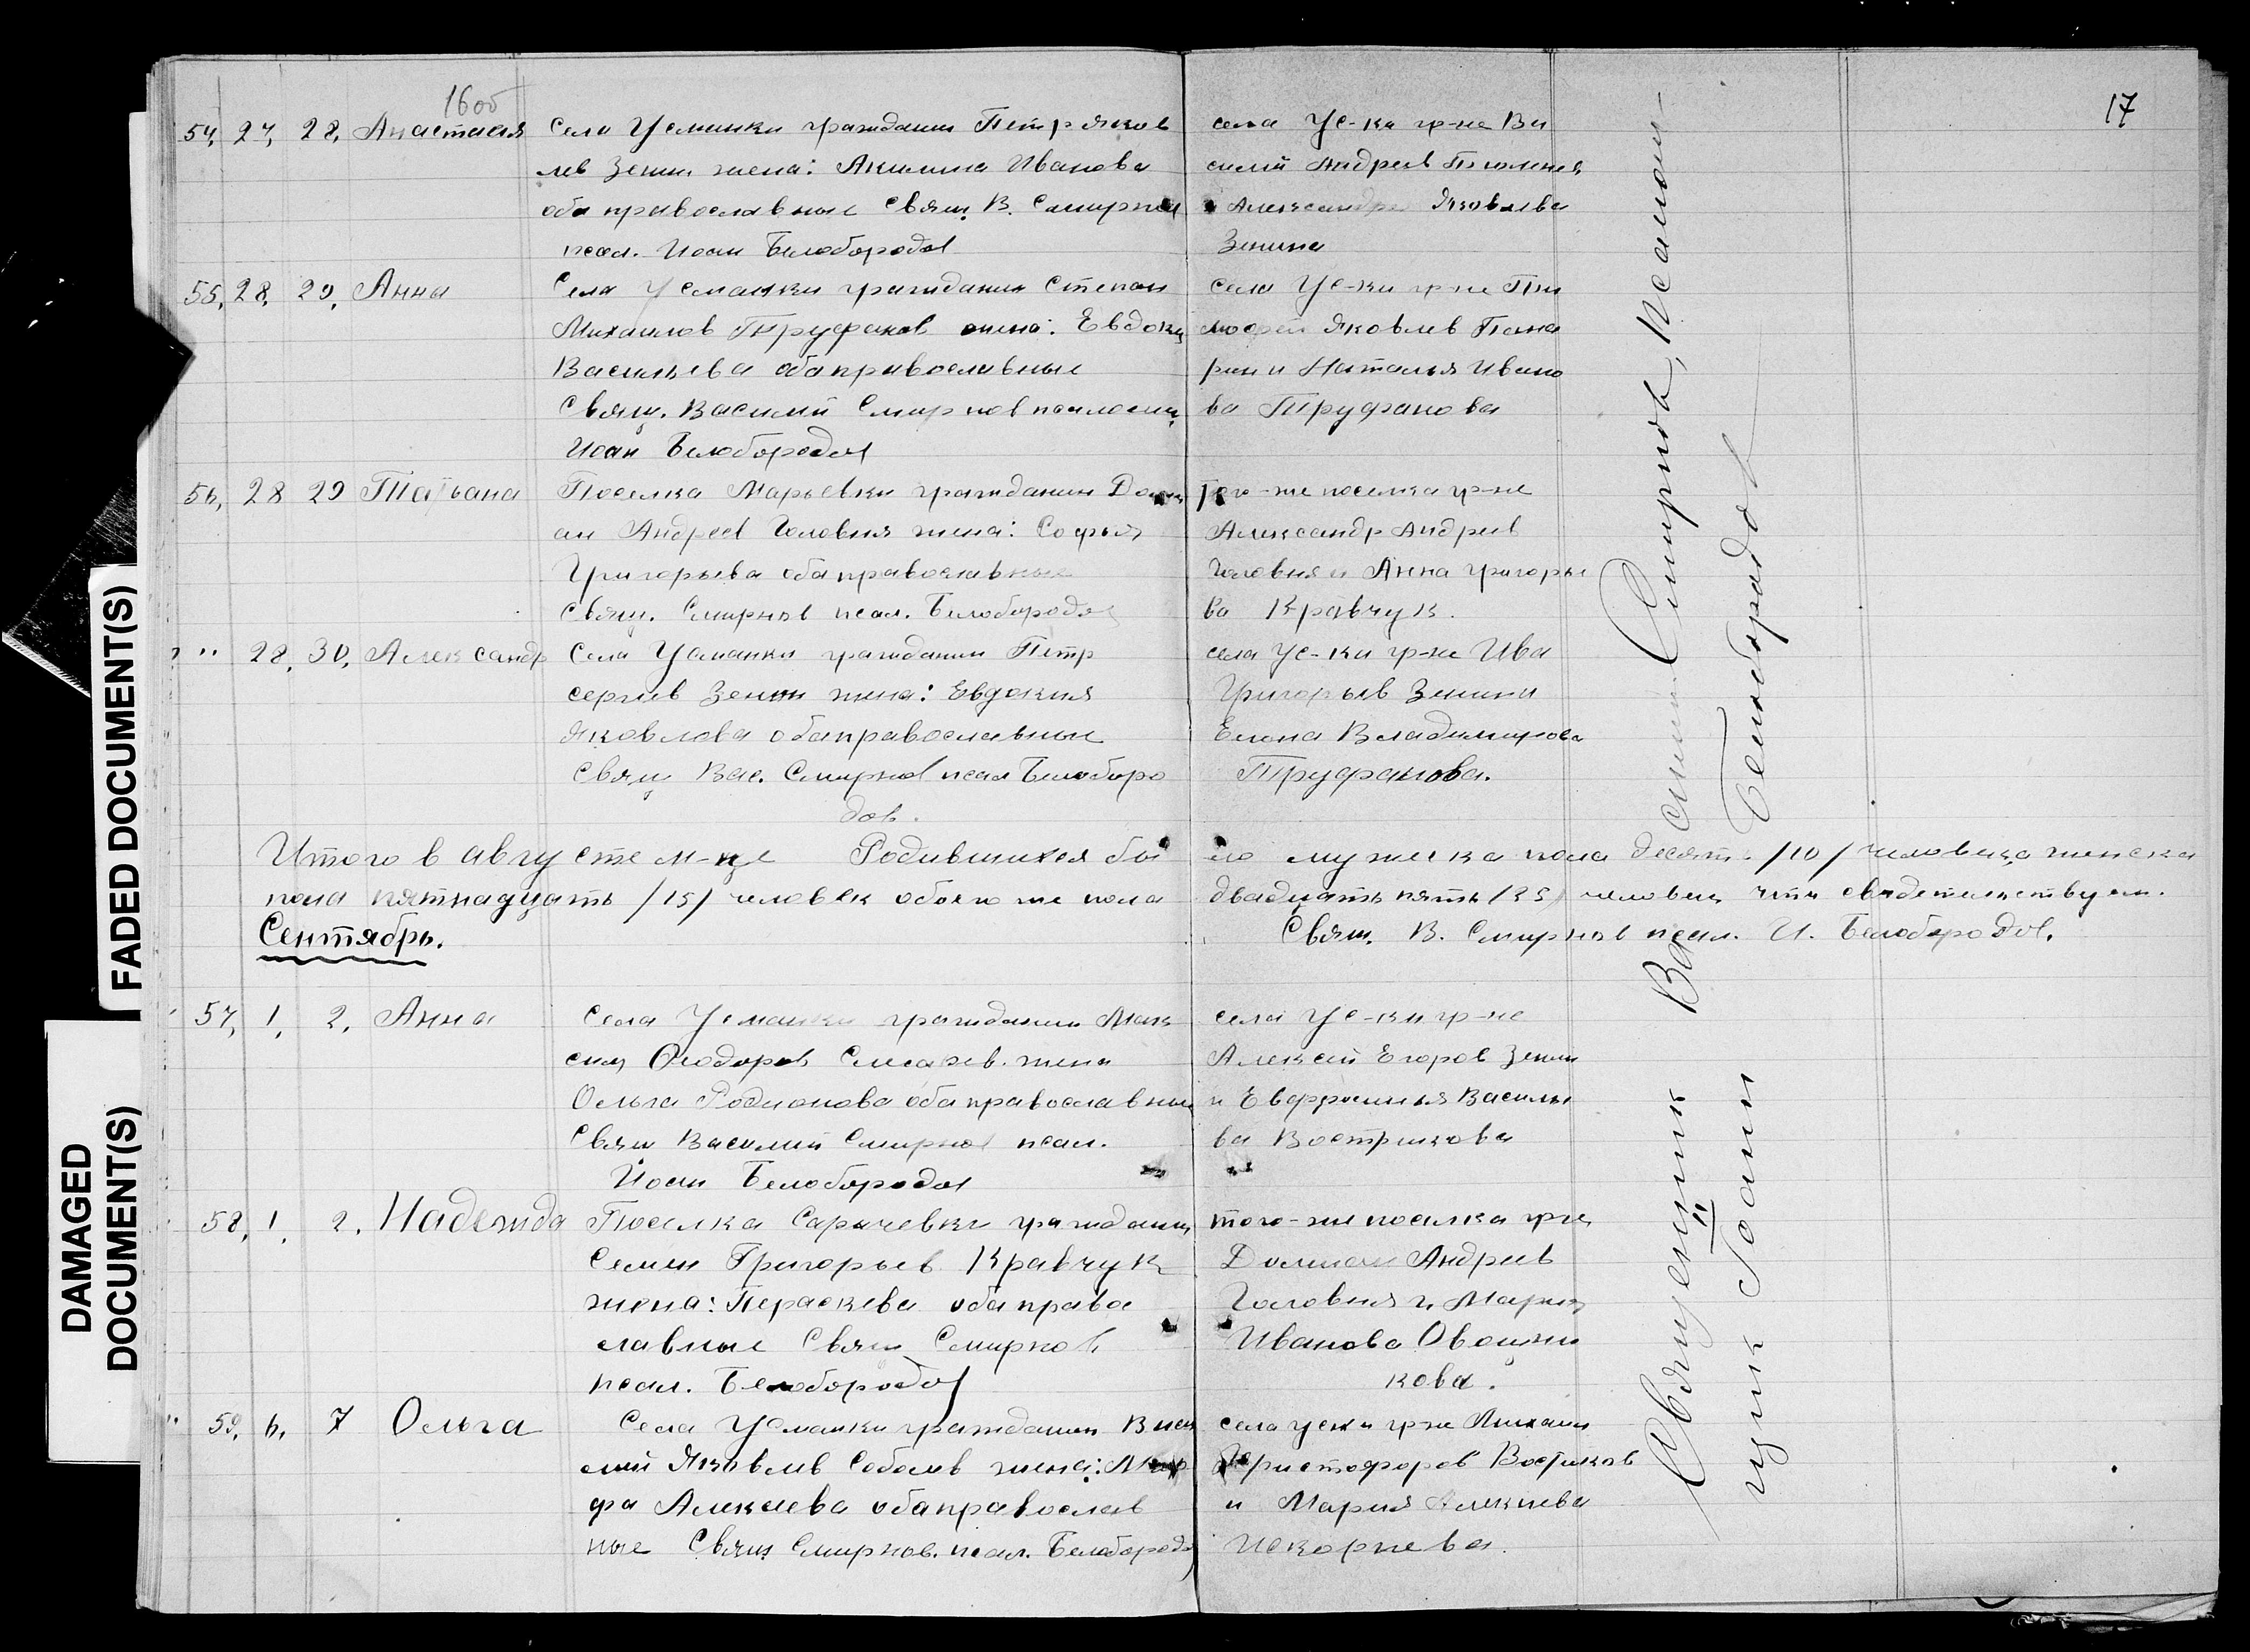 16об
17
54, 27, 28, Анастасия Села Усманки гражданин Петр Яков
лев Зенин жена: Акилина Иванова
оба православные Свящ. В. Смирнов
псал. Иоан Белобородов
села Ус-ки гр-не Ва
силий Андреев
и Александра Яковлева
Зенина
55, 28, 29, Анна Села Усманки гражданин Степан
Михаилов Труфанов жена: Евдокия
Васильева оба православные
Свящ. Василий Смирнов псаломщ.
Иоан Белобородов
села Ус-ки гр-не Ти
мофей Яковлев Пона
рин и Наталья Ивано
ва Труфанова
56, 28 29 Татьана Поселка Марьевки гражданин
ан Андреев Головня жена: Софья
Григорьева оба православные
Свящ. Смирнов псал. Белобородов
того-же поселка гр-не
Александр Андреев
Головня и Анна Григорье
ва Кравчук.
" 28, 30, Александр Села Усманки гражданин Петр
сергеев Зенин жена: Евдокия
Яковлева оба православные
Свящ Вас. Смирнов псал Белоборо
дов.
села Ус-ки гр-не Ива
Григорьев Зенин и
Елена Владимирова
Труфанова.
Итого в августе м-це Родившихся бы
ло мужеска пола десять /10/ человека женска
пола пятнадцать /15/ человек обоего же пола
двадцать пять /25/ человек что свидетельствуем.
Свящ. В. Смирнов псал. И. Белобородов.
Сентябрь.
57, 1, 2, Анна Села Усманки гражданин Мак
сим Феодоров Слесарев. жена
Ольга Родионова оба православные
Свящ Василий Смирнов псал.
Иоан Белобородов
села Ус-ки гр-не
Алексей Егоров Зенин
и Евфросинья Василье
ва Вострикова
58, 1, 2, Надежда Поселка Сарачевки гражданин
Семен Григорьев Кравчук
жена: Пераскева оба право
славные Свящ Смирнов
псал. Белобородов
того-же поселка гр-не
Андреев
Головня и Мария
Иванова Овощни
кова.
59, 6, 7 Ольга Села Усманки гражданин Васи
лий Яковлев Соболев жена: Мар
фа Алексеева оба православ
ные Свящ Смирнов. псал. Белобородов
села уски гр-не Михаил
Христофоров Востриков
и Мария Алексеева
Искорнева.
Священник Василий Смирнов, Псалом-
щик Иоанн Белобородов
FADED DOCUMENT(S)
DAMAGED
DOCUMENT(S)